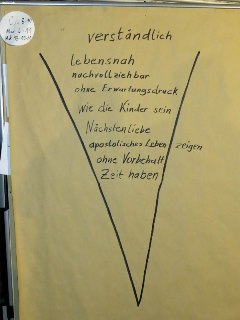 verständlich
lebensnah
nachvollziehbar
ohne Erwartungsdruck
wie die Kinder sein
Nächstenliebe
apostolisches Leben zeigen
ohne Vorbehalt
Zeit haben